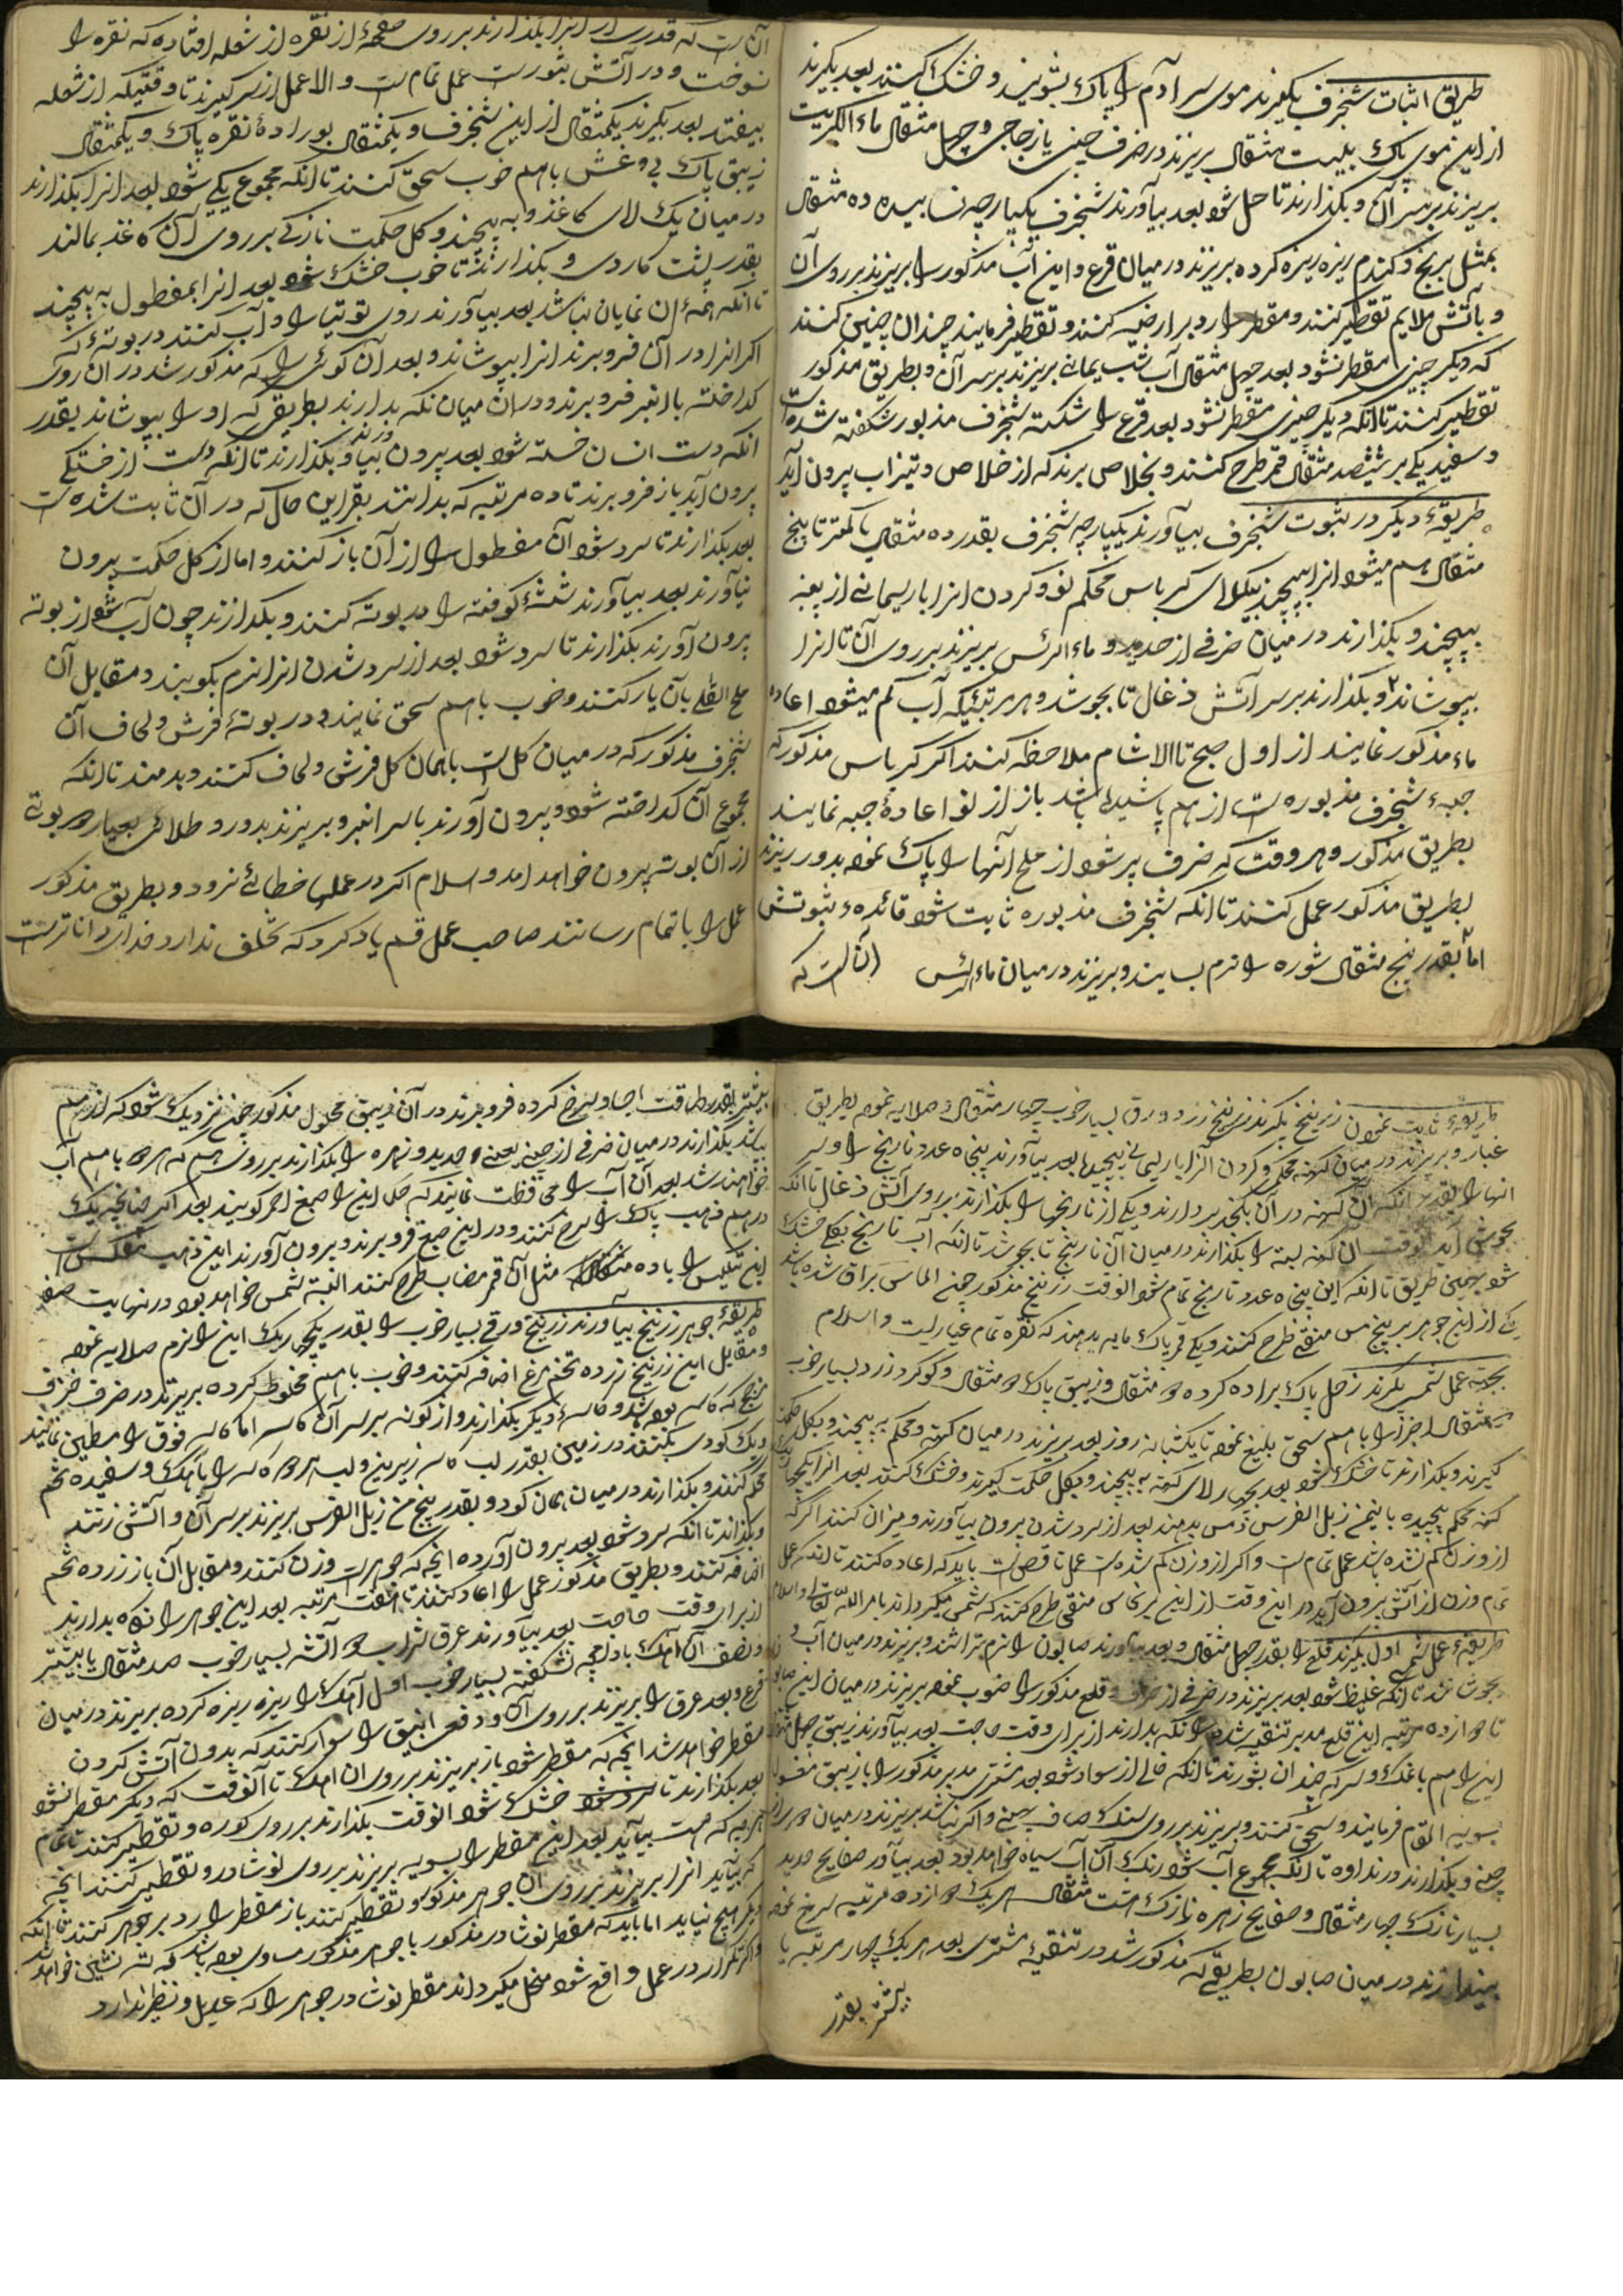 طریق اثبات شنجرف بکیرند موی سر آدم را پاک بشویند و خشک کنند بعد بکیرند
از این موی پاک بیست مثقال بریزند در ظرف چینی یا زجاجی و چهل مثقال ماء الکبریت
بریزند بر سر آن و بکذارند تا حل شود بعد بیاورند شنجرف یکپارچه نسابیده ده مثقال
بمثل برنج و کندم ریزه ریزه کرده بریزند در میان قرع و این آب مذکور را بریزند بر روی آن
و باتش ملایم تقطیر کنند و مقطر را رد بر ارضیه کنند و تقطیر فرمایند چندان چنین کنند
که دیکر چیزی مقطر نشود بعد چهل مثقال آب شب یمانی بریزند بر سر آن و بطریق مذکور
تقطیر کنند تا انکه دیکر چیزی مقطر نشود بعد قرع را شکسته شنجرف مذبور شکفته شده است
و سفید یکی بر شیصد مثقال قمر طرح کنند و بخلاص برند که از خلاص و تیزاب بیرون آید
طریقهٔ دیکر در ثبوت شنجرف بیاورند یکپارچه شنجرف بقدر ده مثقال یا کمتر تا پنج
مثقال هم میشود انرا بپیچند بیکلای کرباس محکم نو و کردن انرا با ریسمانی از پنبه
بپیچند و بکذارند در میان ظرفی از حدید و ماء الرئس بریزند بر روی آن تا انرا
بپوشاند و بکذارند بر سر آتش ذغال تا بجوشد و هر مرتبئیکه آب کم میشود اعاده
ماء مذکور نمایند از اول صبح تا الا شام ملاحظه کنند اکر کرباس مذکور که
جبهٔ شنجرف مذبوره است از هم پاشیده باشد باز از نو اعادهٔ جبه نمایند
بطریق مذکور و هر وقت که ظرف پر شود از ملح انها را پاک نموده بدور ریزند
بطریق مذکور عمل کنند تا انکه شنجرف مذبوره ثابت شود قائدهٔ ثبوتش
اما بقدر پنج مثقال شوره را نرم بسایند و بریزند در میان ماء الرئس آن است که
آن است که قدری از انرا بکذارند بر روی صفحهٔ از نقره از شعله افتاده که نقره را
نسوخت و در آتش بثورت عمل تمام است و الا عمل از سر کیرند تا وقتیکه از شعله
بیفتد بعد بکیرند یکمثقال از این شنجرف و یکمثقال بورادهٔ نقره پاک و یکمثقال
زیبق پاک بی غش باهم خوب سحق کنند تا انکه مجموع یکی شود بعد انرا بکذارند
در میان یک لای کاغذ و به پیچند و کل حکمت نازکی بر روی آن کاغذ بمالند
بقدر پشت کاردی و بکذارند تا خوب خشک شود بعد انرا بمفطول به پیچند
تا انکه همهٔ ان نمایان نباشد بعد بیاورند روی توتیا را و آب کنند در بوتهٔ که
اکر انرا در آن فرو برند انرا بپوشاند و بعد آن کوئی را که مذکور شد در آن روی
کداخته با انبر فرو برند و در آن میان نکه بدارند بطریقی که او را بپوشاند بقدر
انکه دست انسان خسته شود بعد بیرون بیاورند و بکذارند تا انکه دست از خستکی
بیرون آید باز فرو برند تا ده مرتبه که بدانند بقراین حال که در آن ثابت شده است
بعد بکذارند تا سرد شود آن مفطول را از آن باز کنند و اما از کل حکمت بیرون
نیاورند بعد بیاورند شیشهٔ کوفته را در بوته کنند و بکدازند چون آب شود از بوته
بیرون آورند بکذارند تا سرد شود بعد از سرد شدن انرا نرم بکوبند و مقابل آن
ملح القلی بآن یار کنند و خوب باهم سحق نمایند و در بوتهٔ فرش و لحاف آن
شنجرف مذکور که در میان کل است باهمان کل فرش و لحاف کنند و بدمند تا انکه
مجموع آن کداخته شود و بیرون آورند با سر انبر و بریزند بدور و طلائی بعیار هر بوتی
از آن بوته بیرون خواهد امد و اسلام اکر در عملها خطائی نرود و بطریق مذکور
عمل را باتمام رسانند صاحب عمل قسم یاد کرد که تخلف ندارد خدای داناتر است
طریقهٔ ثابت نمودن زرنیخ بکیرند زرنیخ زرد ورق بسیار خوب چهار مثقال و صلایه نموده بطریق
غبار و بریزند در میان کهنه محکمی و کردن آنرا با ریسمانی به پیچند بعد بیاورند پنجاه عدد نارنج را و سر
انها را بقدر انکه آن کهنه در آن بکنجد بردارند و یکی از نارنجها را بکذارند بر روی آتش ذغال تا انکه
بجوش آید آنوقت آن کهنه بسته را بکذارند در میان آن نارنج تا بجوشد تا انکه آب نارنج بکلی خشک
شود بهمین طریق تا انکه این پنجاه عدد نارنج تمام شود انوقت زرنیخ مذکور چون الماس براق شده باشد
یکی از این جوهر بر پنج مس منقی طرح کنند و یکی قمر پاک مایه بدهند که نقره تمام عیار است و اسلام
بجهته عمل شمس بکیرند زحل پاک براده کرده دو مثقال و زیبق پاک دو مثقال و کوکرد زرد بسیار خوب
مثقال اجزا را باهم سحق بلیغ نموده تا یکشبانه روز بعد بریزند در میان کهنه و محکم به پیچند و بکل حکمت
کیرند و بکذارند تا خشک شود بعد بچهار لای کهنه به پیچند و بکل حکمت کیرند و خشک کنند بعد انرا بکهنه
کهنه محکم پیچیده با نیم من زبل الفرس دمس بدهند بعد از سرد شدن بیرون بیاورند و میزان کنند اکر که
از وزن کم نشده باشد عمل تمام است و اکر از وزن کم شده است عمل ناقص است باید که اعاده کنند تا انکه عمل
تمام وزن از آتش بیرون آید در این وقت از این بر نحاس منقی طرح کنند که شمس میکرداند بامر الله تعالی و اسلام
طریقهٔ عمل شمسی اول بکیرند قلع را بقدر چهل مثقال و بعد بیاورند صابون را نرم بتراشند و بریزند در میان آب و
بجوشانند تا انکه غلیظ شود بعد بریزند در ظرفی از و قلع مذکور را ضوب نموده بریزند در میان این صابون
تا دوازده مرتبه این قلع مدبر تنقیه شده را نکه بدارند از برای وقت حاجت بعد بیاورند زیبق چهل مثقال
این را هم با نمک و سرکه چندان بشورند تا انکه خالی از سواد شود بعد مشتری مدبر مذکور را با زیبق مغسول
بسویه القام فرمایند و سحق کنند و بریزند بر روی سنک صاف چینی و اکر نباشد بریزند در میان
چینی و بکذارند در نداوه تا انکه مجموع آب شود رنک آن آب سیاه خواهد بود بعد بیاورند صفایح حدید
بسیار نازک چهار مثقال و صفایح زهره نازک هشت مثقال هر یک دوازده مرتبه سرخ نموده
بیندازند در میان صابون بطریقی که مذکور شد در تنقیهٔ مشتری بعد هر یک چهار مرتبه یا
بیشتر بقدر
بیشتر بقدر طاقت اجساد سرخ کرده فرو برند در آن زیبق محلول مذکور چون نزدیک شود که از هم
بپاشد بکذارند در میان ظرفی از چینی یعنی حدید و زهره را بکذارند بر روی هم که هر دو باهم آب
خواهند شد بعد آن آب را محافظت نمایند که حل این را صمغ احمر کویند بعد اکر چنانچه یک
درهم ذهب پاک را سرخ کنند و در این صمغ فرو برند و بیرون آورند این ذهب مکلس است
این تکلیس را با ده مثل آن قمر مضاب طرح کنند البته شمس خواهد بود در نهایت صفر
طریقهٔ جوهر زرنیخ بیاورند زرنیخ ورقی بسیار خوب را بقدر یکچهاریک این را نرم صلایه نموده
و مقابل این زرنیخ زرده تخم مرغ اضافه کنند و خوب باهم مخلوط کرده بریزند در ظرف خزف
مزجج که کاسه بوده باشد و کاسهٔ دیکر بکذارند واژکونه بر سر آن کاسه اما کاسه فوق را مطین نمایند
و یک کودی بکنند در زمین بقدر لب کاسه زیرین و لب هر دو کاسه را باهک و سفیده تخم
محکم کنند و بکذارند در میان همان کود و بقدر پنج من زبل الفرس بریزند بر سر آن و آتش زنند
و بکذارند تا انکه سرد شود بعد بیرون آورده انچه که جوهر است وزن کنند و مقابل آن باز زرده تخم
اضافه کنند و بطریق مذکور عمل را اعاد کنند تا هفت مرتبه بعد این جوهر را نکاه بدارند
از برای وقت حاجت بعد بیاورند عرق شراب دو آتشه بسیار خوب صد مثقال یا بیشتر
و نصف آن آهک نشکفته بسیار خوب اول آهک را ریزه ریزه کرده بریزند در میان
قرع و بعد عرق را بریزند بر روی آن و دفعی انبیق را سوار کنند که بدون آتش کردن
مقطر خواهد شد انچه که مقطر شود باز بریزند بر روی ان اهک تا آنوقت که دیکر مقطر نشود
بعد بکذارند تا خشک شود انوقت بکذارند بر روی کوره و تقطیر کنند تا تمام
هر چه که هست بیاید بعد این مقطر را بسویه بریزند بر روی نوشادر و تقطیر کنند انچه
که بیاید انرا بریزند بر روی ان جوهر مذکور و تقطیر کنند باز مقطر را رد بر جوهر کنند تا انکه
دیکر هیچ نیاید اما باید که مقطر نوشادر مذکور با جوهر مذکور مساوی بوده باشد که ته نشین خواهد
و اکر تکرار در عمل واقع شود منحل میکرداند مقطر نوشادر جوهر را که عدیل و نظیر ندارد